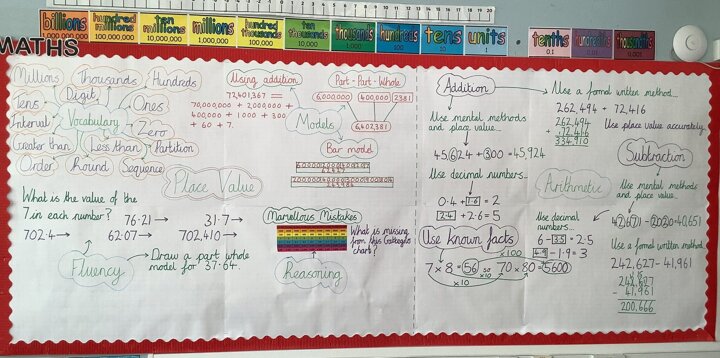 billions
hundred millions
100,000,000
ten millions
10,000,000
millions
1,000,000
hundred thousands
100,000
ten thousands
10,000
thousands
1,000
hundreds
100
tens
10
units
1
tenths
0.1
hundredths
thousandths
0.001
MATHS
Millions
Thousands
Hundreds
Tens
Digit
Ones
Interval
Vocabulary
Zero
Greater than
Less than
Partition
Order
Round
Sequence
Place Value
What is the value of the
7 in each number?
76.21 →
31.7 →
702.4 →
62.07 →
702,410 →
Fluency
Draw a part whole
model for 37.64.
Using addition
72,401,367 =
70,000,000 + 2000000 +
400,000 + 1000 + 300
+ 60 + 7.
Models
Part-Part-Whole
6,000,000
400,000
2381
6,402,381
Bar model
Marvellous Mistakes
What is missing
from this Gattegno
chart?
Reasoning
Addition
Use mental methods
and place value...
45,624 + 300 = 45,924
Use decimal numbers...
0.4 + 1.6 = 2
2.4 + 2.6 = 5
Use known facts
7 × 8 = 56 so 70 × 80 = 5600
×100
×10
×10
Use a formal written method...
262,494 + 72,416
262,494
+ 72,416
334,910
Use place value accurately
Subtraction
Arithmetic
Use mental methods
and place value...
Use decimal
numbers...
6 - 3.5 = 2.5
4.9 - 1.9 = 3
Use a formal written method
242,627 - 41,961
- 41,961
200,666